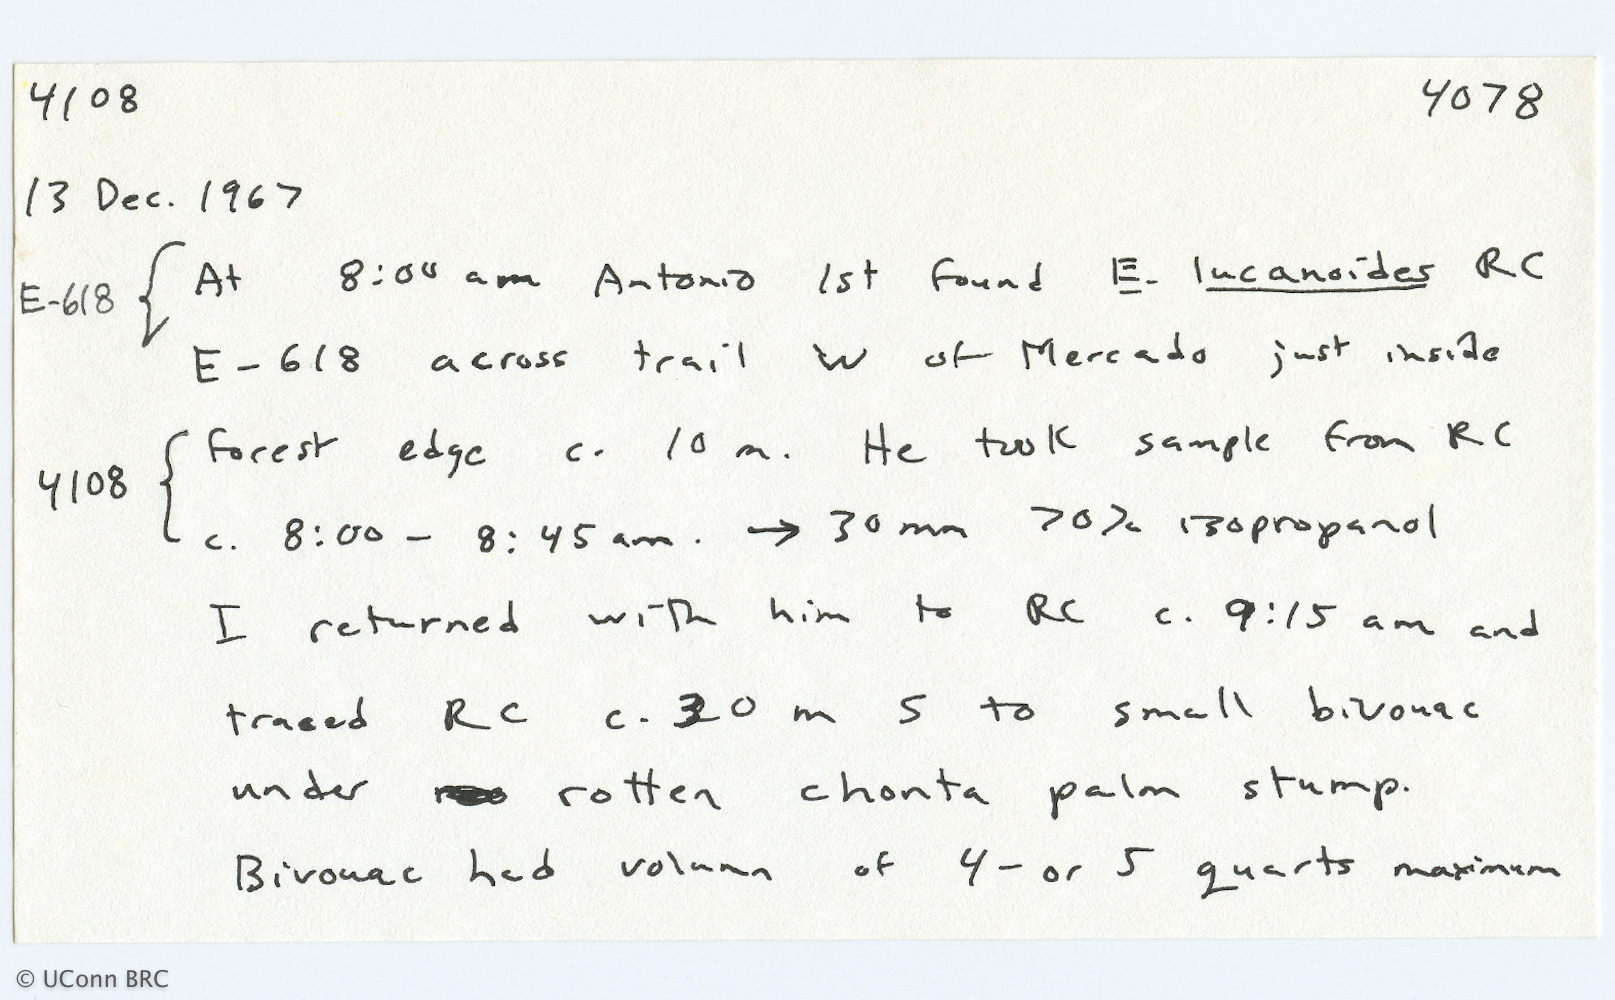 4108 4078
13 Dec. 1967
E-618 { At 8:00 am Antonio 1st found E. lucanoides RC
E-618 across trail W of Mercado just inside
4108 { forest edge c. 10 m. He took sample from RC
c. 8:00 - 8:45 am. → 30 mm 70% isopropanol
I returned with him to RC c. 9:15 am and
traced RC c. 30 m S to small bivouac
under rotten chonta palm stump.
Bivouac had volumn of 4- or 5 quarts maximum
© UConn BRC